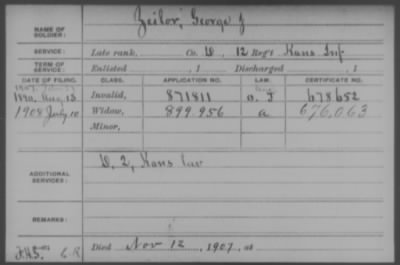 NAME OF SOLDIER: Zeilor, George J
SERVICE: Late rank, Co. D, 12 Reg't Kans Inf.
TERM OF SERVICE: Enlisted , 1 Discharged , 1
DATE OF FILING. CLASS. APPLICATION NO. LAW. CERTIFICATE NO.
1890, Aug 13 Invalid, 871811 a. J 678652
1908 July 10 Widow, 899.956 a 676,063
Minor,
ADDITIONAL SERVICES: D, 2, Kans Cav
REMARKS:
Died Nov 12, 1907, at